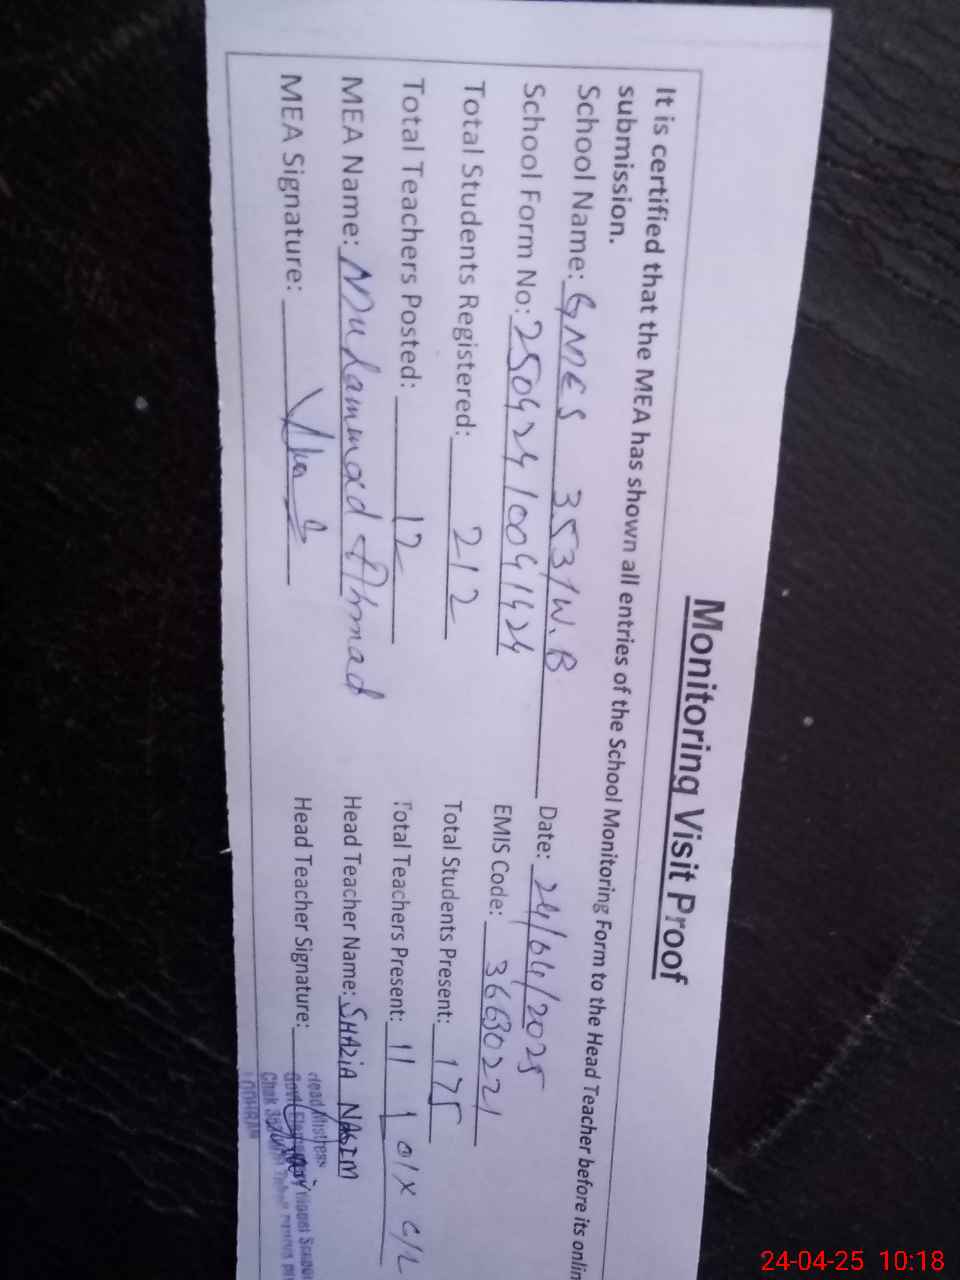 Monitoring Visit Proof
It is certified that the MEA has shown all entries of the School Monitoring Form to the Head Teacher before its onlin
submission.
School Name: GMES 353/W.B Date: 24/04/2025
School Form No: 25042410041424 EMIS Code: 36630221
Total Students Registered: 212 Total Students Present: 175
Total Teachers Posted: 12 Total Teachers Present: 11 1 01X C/L
MEA Name: Muhammad Ahmad Head Teacher Name: SHAZIA NASIM
MEA Signature: Head Teacher Signature:
Head Mistress
Govt. Elementary Model School
Chak
LODHRAN
24-04-25 10:18